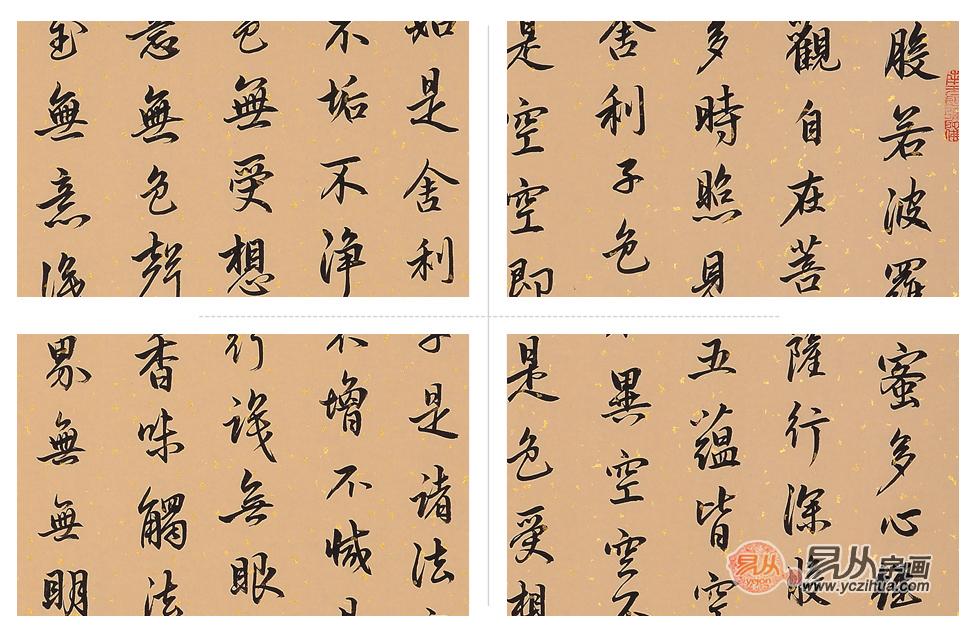 般若波羅
觀自在菩
多時照見
舍利子色
是空空即
蜜多心經
薩行深般
五蘊皆空
異空空不
是色受想
如是舍利
不垢不淨
色無受想
意無色聲
至無意識
子是諸法
不增不減
行識無眼
香味觸法
界無無明
易从
yejon
易从字画
www.yczihua.com